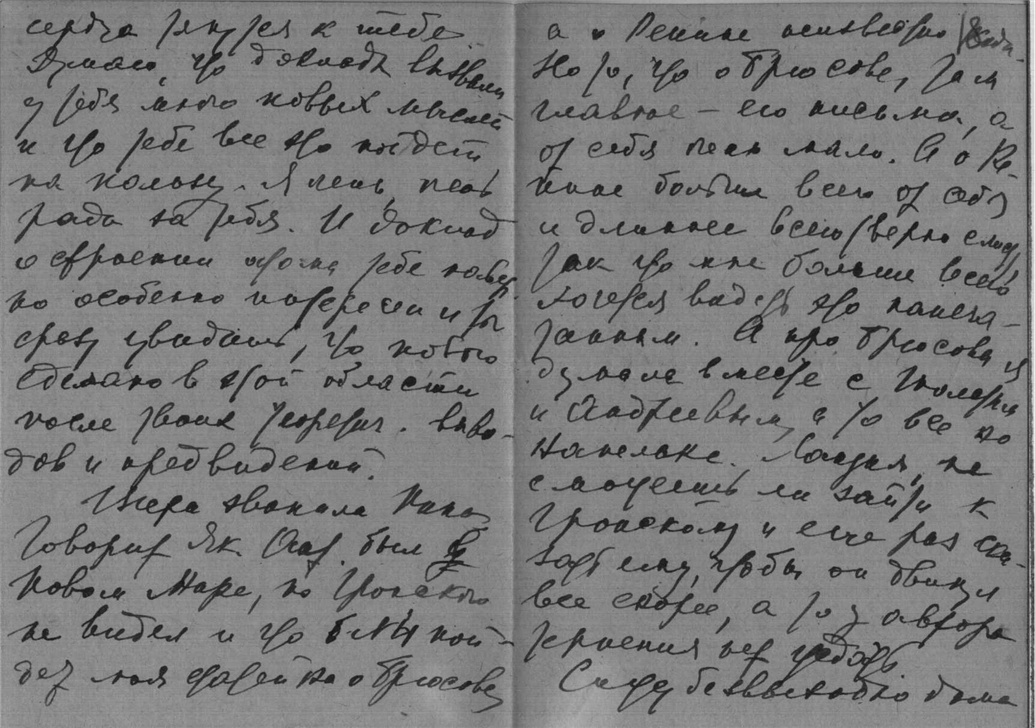 сердца рвутся к тебе.
Думаю, что доклады вызвали
у тебя много новых мыслей
и что тебе все это пойдет
на пользу. Я очень, очень
рада за тебя. И доклад
о строении атома тебе
но особенно интересен и ты
сразу увидишь, что нового
сделано в этой области
после твоих теоретич. выво-
дов и предвидений.
Вчера звонила Нина
Говорит Як. был в
Новом Мире, но Гронского
не видел и что пой-
дет моя статейка о Брюсове,
а о Репине неизвестно
Но то, что о Брюсове, там
главное – его письма, а
от себя очень мало. А о Ре-
пине больше всего от себя
и длиннее всего (верно
так что мне больше всего
хочется видеть это напеча-
танным. А про Брюсова я
думала вместе с
и Андреевым, а то все по
капельке. не
сможешь ли зайти к
Гронскому и еще раз ска-
зать ему, чтобы он двинул
все скорее, а то у автора
терпения нет ждать
Сижу безвыходно дома